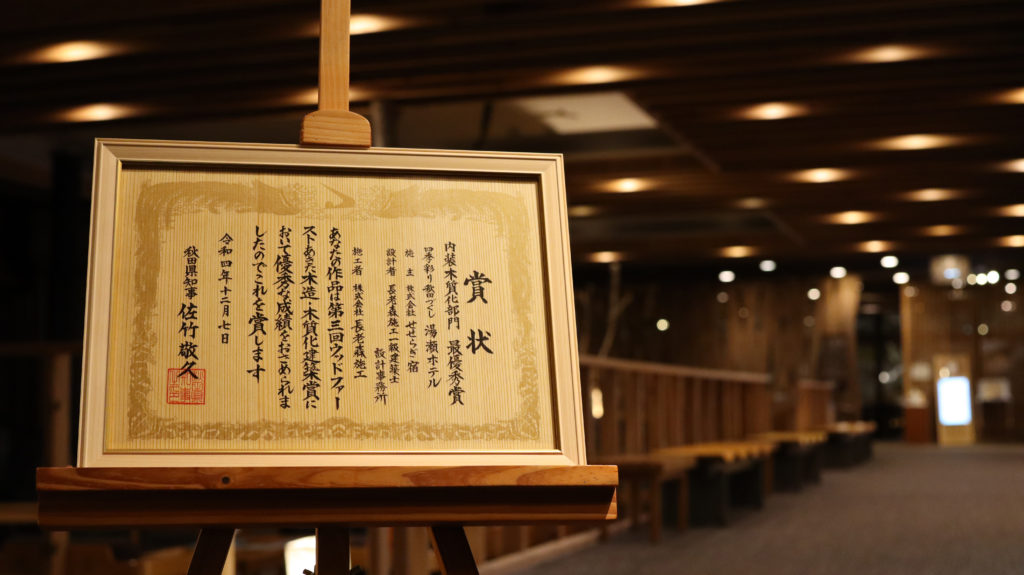 賞状
内装木質化部門 最優秀賞
四季彩り秋田づくし 湯瀬ホテル
施主 株式会社 せせらぎ宿
設計者 長老森施工一級建築士
設計事務所
施工者 株式会社 長老森施工
あなたの作品は第三回ウッドファー
ストあきた木造・木質化建築賞に
おいて優秀な成績をおさめられま
したのでこれを賞します
令和四年十二月七日
秋田県知事 佐竹敬久